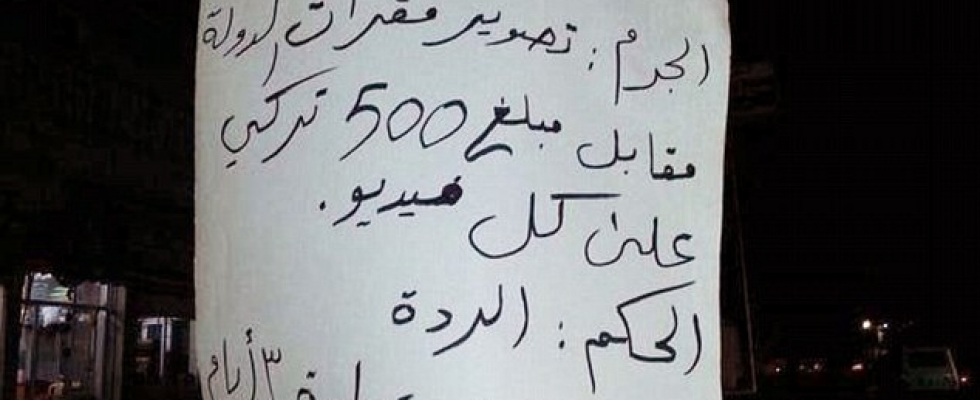 الجرم : تصوير مقرات الدولة
مقابل مبلغ 500 تركي
على كل فيديو .
الحكم : الردة
٣ أيام